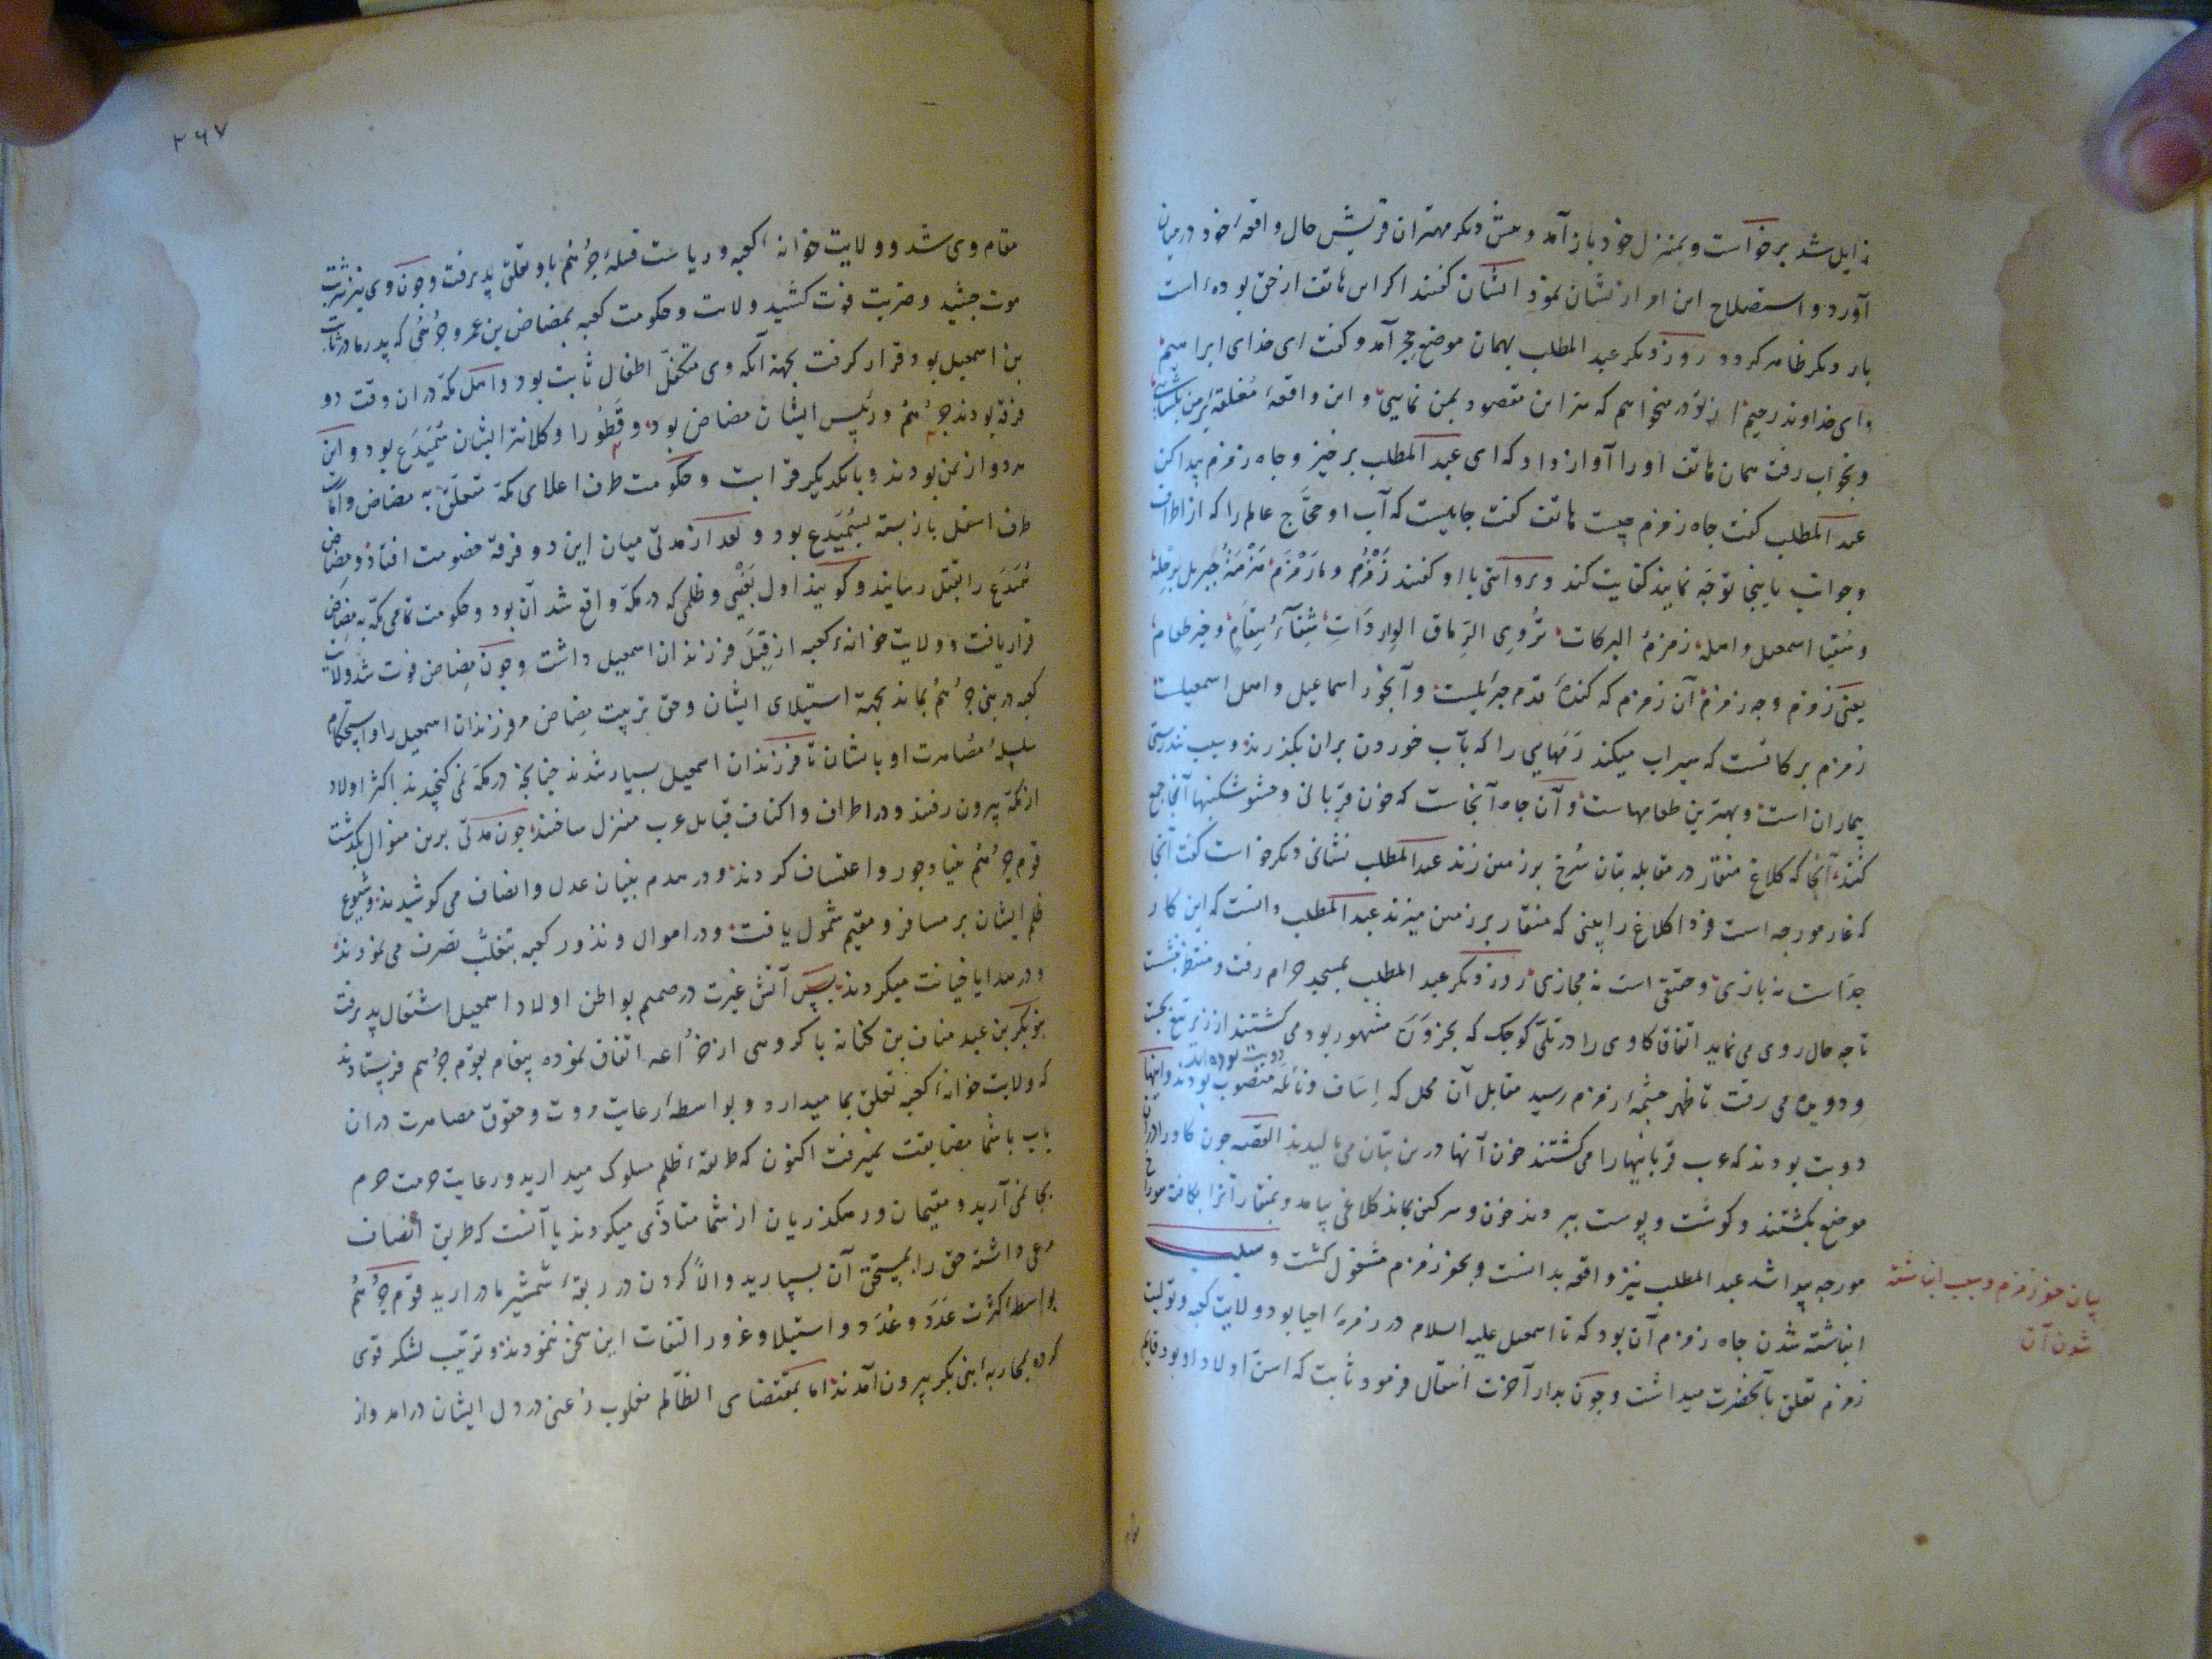 زایل شد برخاست و بمنزل خود باز آمد و پیش دیگر مهتران قریش حال و اقعهٔ خود در میان
آورد و استصلاح این امر از یشان نمود ایشان گفتند اگر این هاتف از حق بوده است
بار دیگر ظاهر گردد روز دیگر عبد المطلب بهمان موضع حجر آمد و گفت ای خدای ابراهیم
و ای خداوند رحیم از تو در میخواهم که سر این مقصود بمن نمایی و این واقعهٔ مغلقه بر من بگشایی
و بخواب رفت همان هاتف او را آواز داد که ای عبد المطلب برخیز و چاه زمزم پیدا کن
عبد المطلب گفت چاه زمزم چیست هاتف گفت جاییست که آب او حجّاج عالم را که از اطراف
و جوانب باینجا توجه نمایند کفایت کند و بروایتی با او گفتند زَمْزَم و ما زَمْزَم هَزْمَةُ جبریل برجله
و سُقیا اسمعیل و اهله زمزمُ البرکات تُروِی الرِفاق الوارِداتِ شِفَآءُ سِقامٍ و خیر طعام
یعنی زمزم و چه زمزم آن زمزم که کندهٔ قدم جبرئیلست و آبخور اسماعیل و اهل اسمعیلست
زمزم برکاتست که سیراب میکند رَمَهایی را که بآب خوردن بران بگذرند و سبب تندرستی
بیماران است و بهترین طعامهاست و آن چاه آنجاست که خون قربانی و حشو شکنبها آنجا جمع
کنند آنجا که کلاغ منقار در مقابله بتان سُرخ بر زمین زند عبد المطلب نشانی دیگر خواست گفت آنجا
که غار مورچه است فردا کلاغ را بینی که منقار بر زمین میزند عبد المطلب دانست که این کار
جدّاست نه بازی و حقیقی است نه مجازی روز دیگر عبد المطلب بمسجد حرام رفت و منتظر بنشست
تا چه حال روی می نماید اتفاقا گاوی را در تلّی کوچک که بحزوَرَه مشهور بود می کشتند از زیر تیغ بجست
و دویده می رفت تا ظهر چشمهٔ زمزم رسید مقابل آن محل که اِسَاف و نائله منصوب بودند و اینها
دو بت بوده اند
دو بت بودند که عرب قربانیها را می کشتند خون آنها در سر بتان می مالیدند القصه چون گاو را دران
موضع بکشتند و گوشت و پوست ببردند خون و سرگین بماند کلاغی بیامد و بمنقار آنرا بکافت سوراخ
مورچه پیدا شد عبد المطلب نیز واقعه بدانست و بحفر زمزم مشغول گشت و سبب
بیان حفر زمزم و سبب انباشته
شدن آن
انباشته شدن چاه زمزم آن بود که تا اسمعیل علیه السلام در زمرهٔ احیا بود ولایت کعبه و تولیت
زمزم تعلق بآنحضرت میداشت و چون بدار آخرت انتقال فرمود ثابت که اسنّ اولاد او بود قایم
۲۶۷
مقام وی شد و ولایت خزانهٔ کعبه و ریاست قبیلهٔ جُرهُم باو تعلق پذیرفت و چون وی نیز شربت
موت چشید و ضربت فوت کشید ولایت و حکومت کعبه بمضاض بن عمرو جُرهُمی که پدر مادر ثابت
بن اسمعیل بود قرار گرفت بجهة آنکه وی متکفّل اطفال ثابت بود و اهل مکّه در ان وقت دو
فرقه بودند جُرهُم و رئیس ایشان مضاض بود و قَطُورا و کلانتر ایشان سَمَیدَع بود و این
هر دو از یمن بودند و با یکدیگر قرابت و حکومت طرف اعلای مکّه متعلّق به مضاض و امارت
طرف اسفل باز بسته بسَمَیدَع بود و بعد از مدتی میان این دو فرقه خصومت افتاد و مضاض
سَمَیدَع را بقتل رسانید و گویند اول بَغْیی و ظلمی که در مکّه واقع شد آن بود و حکومت تمامی مکّه به مِضاض
قرار یافت و ولایت خزانهٔ کعبه از قِبَل فرزندان اسمعیل داشت و چون مِضاض فوت شد ولایت
کعبه در بنی جُرهُم بماند بجهة استیلای ایشان و حق تربیت مِضاض مر فرزندان اسمعیل را و استحکام
سلسلهٔ مصاهرت او با ایشان تا فرزندان اسمعیل بسیار شدند چنانچه در مکّه نمی گنجیدند اکثر اولاد
از مکّه بیرون رفتند و در اطراف و اکناف قبایل عرب منزل ساختند چون مدتی برین منوال بگذشت
قوم جُرهُم بنیاد جور و اعتساف کردند و در هدم بنیان عدل و انصاف می کوشیدند و شیوع
ظلم ایشان بر مسافر و مقیم شمول یافت و در اموال و نذور کعبه بتغلّب تصرف می نمودند
و در هدایا خیانت میکردند پس آتش غیرت در صمیم بواطن اولاد اسمعیل اشتعال پذیرفت
بنو بکر بن عبد مناف بن کنانه با گروهی از خزاعه اتفاق نموده پیغام بقوم جُرهم فرستادند
که ولایت خزانهٔ کعبه تعلق بما میدارد و بواسطهٔ رعایت مروت و حقوق مصاهرت دران
باب با شما مضایقت نمیرفت اکنون که طریقهٔ ظلم مسلوک میدارید و رعایت حرمت حرم
بجا نمی آرید و مقیمان و رهگذریان از شما متاذّی میگردند یا آنست که طریق انصاف
مرعی داشته حق را بمستحق آن بسپارید و الّا گردن در ربقهٔ شمشیر ما درارید قوم جُرهُم
بواسطهٔ کثرت عَدَد و عُدَد و استیلا و غرور التفات این سخن ننمودند و ترتیب لشکر قوی
کرده بمحاربهٔ بنی بکر بیرون آمدند اما بمقتضای الظّالم مغلوب رعبی در دل ایشان درامد و از